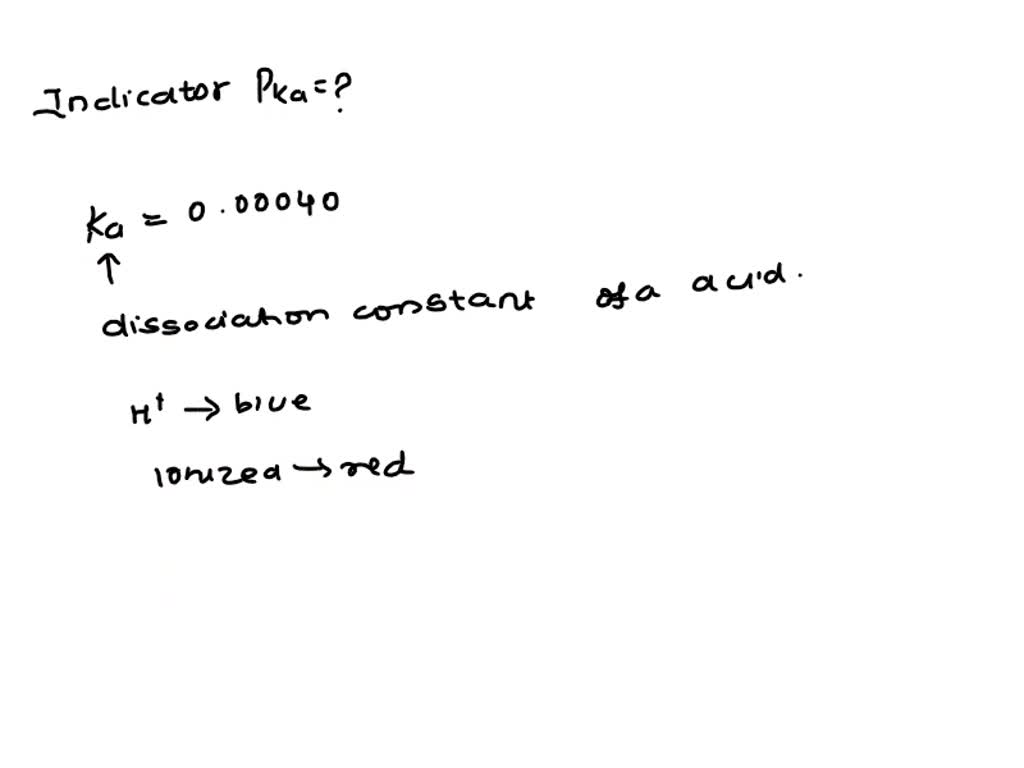 Indicator PKa=?
Ka = 0.00040
↑
dissociation constant of a acid.
H+ → blue
Ionized → red